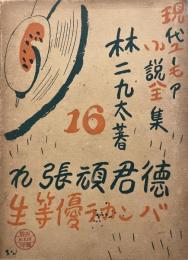 現代ユーモア
小説全集
16
林二九太著
徳君頑張れ
バンカラ優等生